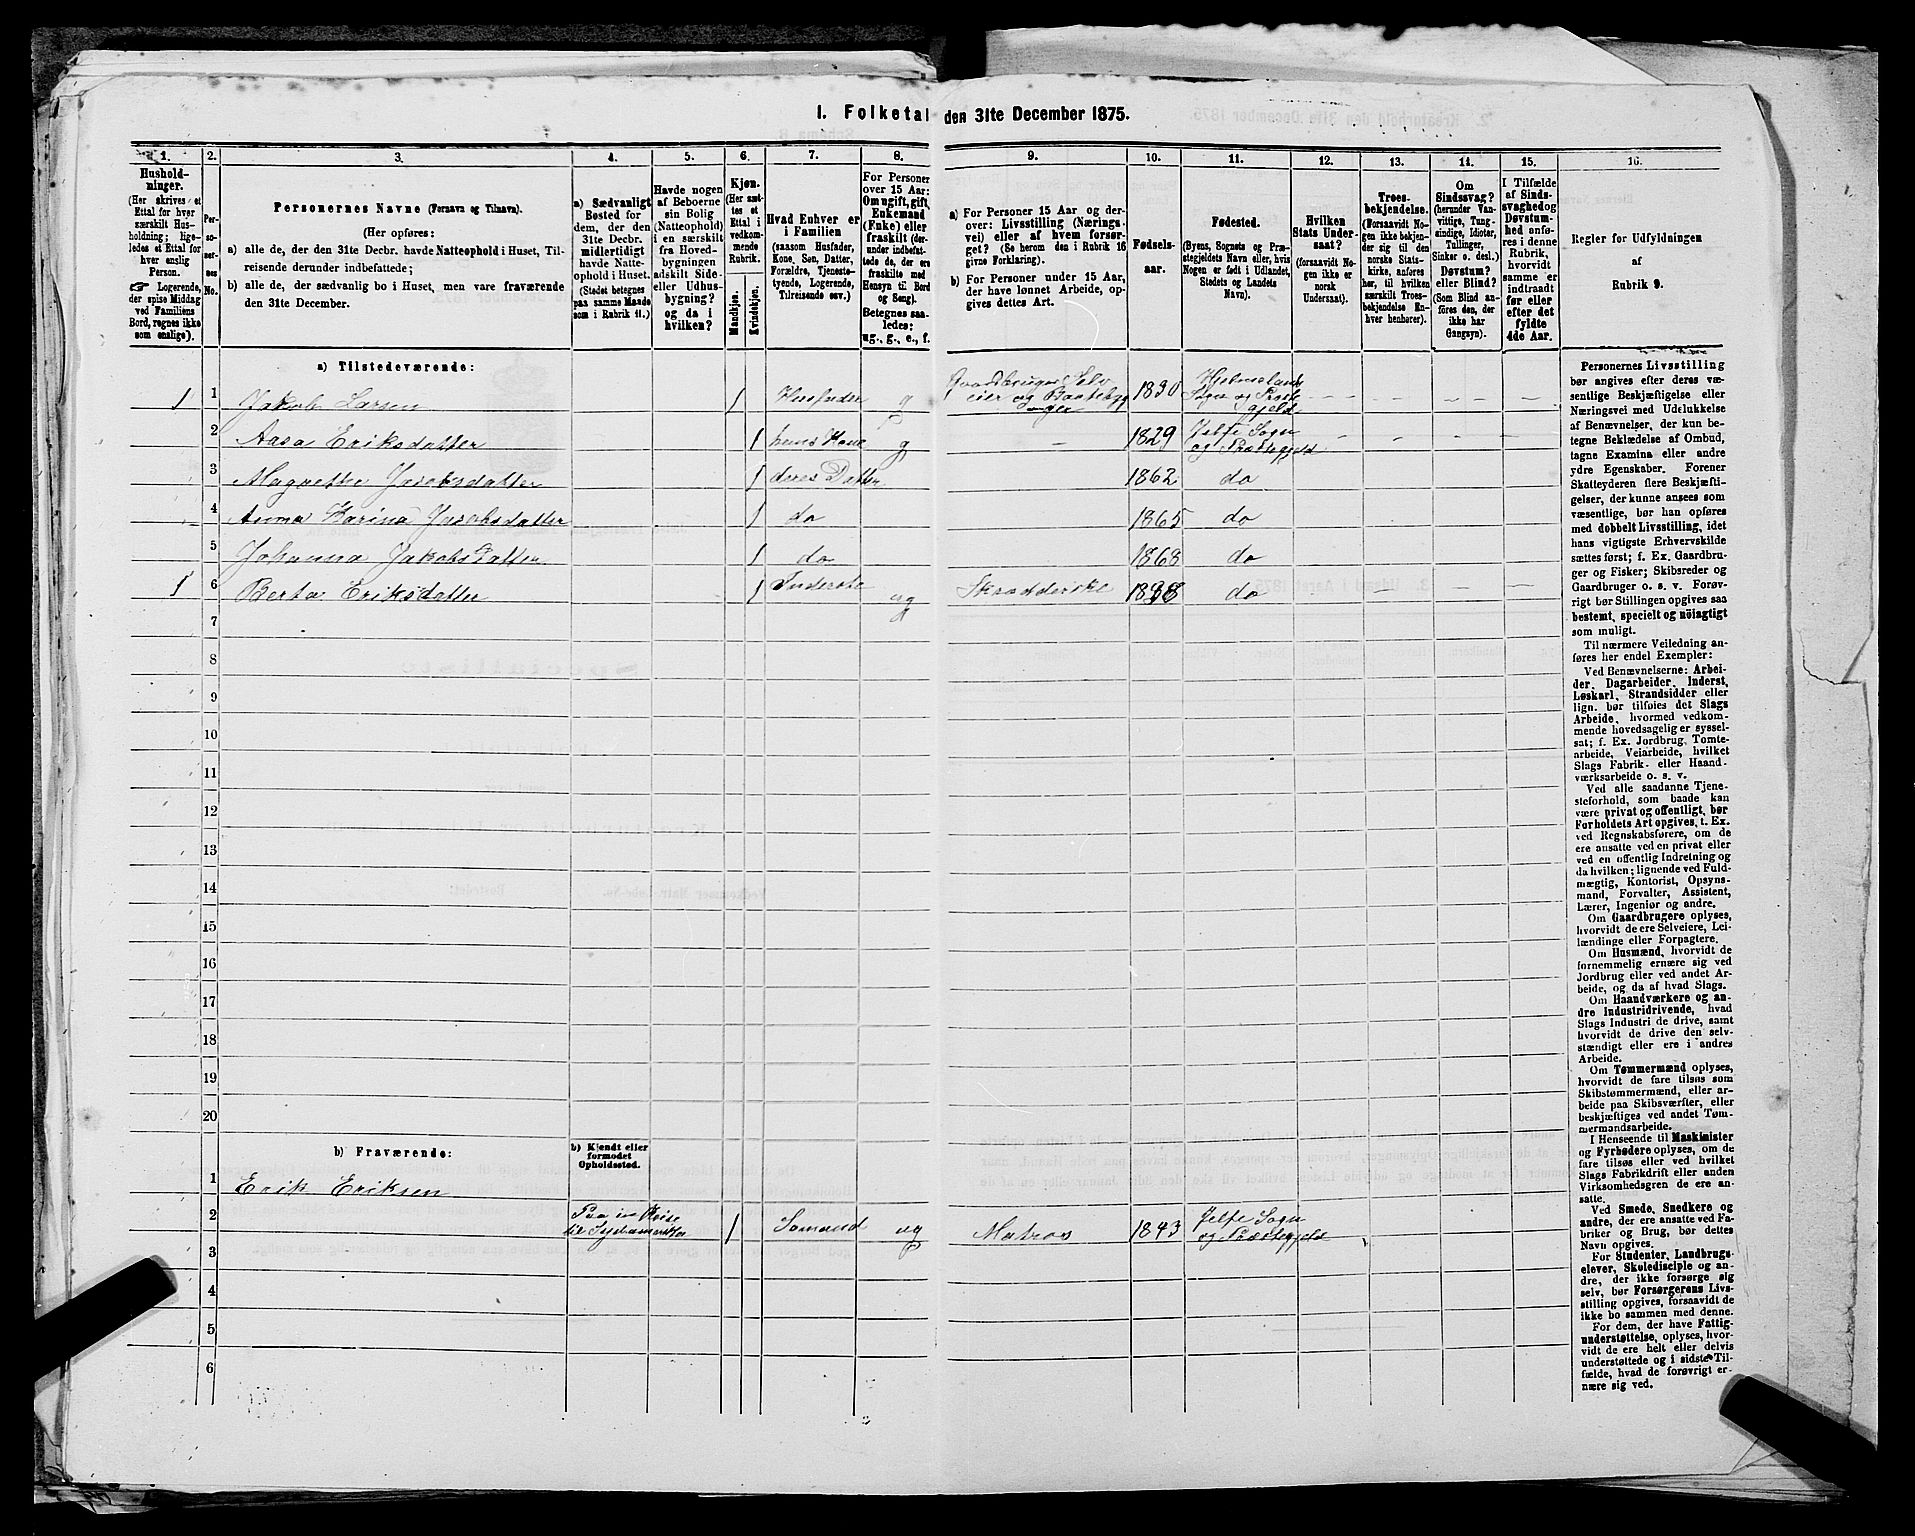 1. Folketal den 31te December 1875.
1. 2. 3. 4. 5. 6. 7. 8. 9. 10. 11. 12. 13. 14. 15. 16.
Hushold-
ninger.
(Her skrives et
Ettal for hver
særskilt Hus-
holdning; lige-
ledes et Ettal for
hver enslig
Person.
☞ Logerende,
der spise Middag
ved Familiens
Bord, regnes ikke
som enslige).
Per-
so-
ner-
nes
No.
Personernes Navne (Fornavn og Tilnavn).
(Her opføres:
a) alle de, der den 31te Decbr. havde Natteophold i Huset, Til-
reisende derunder indbefattede;
b) alle de, der sædvanlig bo i Huset, men vare fraværende
den 31te December.
a) Sædvanligt
Bosted for
dem, der den
31te Decbr.
midlertidigt
havde Natte-
ophold i Huset.
(Stedet betegnes
paa samme Maade
som i Rubrik 11.)
Havde nogen
af Beboerne
sin Bolig
(Natteophold)
i en særskilt
fra Hoved-
bygningen
adskilt Side-
eller Udhus-
bygning?
og da i
hvilken?
Kjøn.
(Her sæt-
tes et
Ettal i
vedkom-
mende
Rubrik.
Mandkjøn.
Kvindekjøn.
Hvad Enhver er
i Familien
(saasom Husfader,
Kone, Søn, Datter,
Forældre, Tjeneste-
tyende, Logerende,
Tilreisende osv.)
For Personer
over 15 Aar:
Om ugift, gift,
Enkemand
(Enke) eller
fraskilt (der-
under indbefat-
tede de, der ere
fraskilte med
Hensyn til Bord
og Seng).
Betegnes saa-
ledes:
ug., g., e., f.
a) For Personer 15 Aar og der-
over: Livsstilling (Nærings-
vei) eller af hvem forsør-
get? (Se herom den i Rubrik 16
givne Forklaring).
b) For Personer under 15 Aar,
der have lønnet Arbeide, op-
gives dettes Art.
Fødsels-
aar.
Fødested.
(Byens, Sognets og Præ-
stegjeldets Navn eller, hvis
Nogen er født i Udlandet,
Stedets og Landets
Navn).
Hvilken
Stats Under-
saat?
(forsaavidt No-
gen ikke er
norsk
Undersaat).
Troes-
bekjendelse.
(Forsaavidt No-
gen ikke bekjen-
der sig til den
norske Stats-
kirke, anføres
her, til hvilken
særskilt Troes-
bekjendelse En-
hver henhører).
Om
Sindssvag?
(herunder Van-
vittige, Tung-
sindige, Idioter,
Tullinger,
Sinker o. desl.)
Døvstum?
eller Blind?
(Som Blind an-
føres den, der
ikke har
Gangsyn).
I Tilfælde
af Sinds-
svaghed og
Døvstum-
hed anfø-
res i denne
Rubrik,
hvorvidt
samme er
indtraadt
før eller
efter det
fyldte
4de Aar.
Regler for Udfyldningen
af
Rubrik 9.
a) Tilstedeværende:
1 1 Jakob Larsen 1 Husfader g Gaardbruger Selv
eier og Baatebyg
ger 1830 Hjelmeland
Sogn og Præste
gjeld — — — —
2 Aasa Eriksdatter 1 hans Kone g — 1829 Jelse Sogn
og Præstegjeld — — — —
3 Magrethe Jacobsdatter 1 deres Datter 1862 do
4 Anna Karina Jacobsdatter 1 do 1865 do
5 Johanna Jakobsdatter 1 do 1868 do
1 6 Berta Eriksdatter 1 Inderste ug 1838 do — — —
7
8
9
10
11
12
13
14
15
16
17
18
19
20
b) Fraværende:
b) Kjendt eller
formodet
Opholdssted.
1 Erik Eriksen
2 Paa en Reise
til Sydamerika 1 Sømand ug Matros 1843 Jelse Sogn
og Præstegjeld
3
4
5
6
Personernes Livsstilling
bør angives efter deres væ-
sentlige Beskjæftigelse eller
Næringsvei med Udelukkelse
af Benævnelser, der kun be-
tegne Beklædelse af Ombud,
tagne Examina eller andre
ydre Egenskaber. Forener
Skatteyderen flere Beskjæfti-
gelser, der kunne ansees som
væsentlige, bør han opføres
med dobbelt Livsstilling, idet
hans vigtigste Erhvervskilde
sættes først; f. Ex. Gaardbru-
ger og Fisker; Skibsreder og
Gaardbruger o. s. v. Forøv-
rigt bør Stillingen opgives saa
bestemt, specielt og nöiagtigt
som muligt.
Til nærmere Veiledning an-
føres her endel Exempler:
Ved Benævnelserne: Arbei-
der, Dagarbeider, Inderst,
Løskarl, Strandsidder eller
lign. bør tilføies det Slags
Arbeide, hvormed vedkom-
mende hovedsagelig er syssel-
sat; f. Ex. Jordbrug, Tomte-
arbeide, Veiarbeide, hvilket
Slags Fabrik- eller Haand-
værksarbeide o. s. v.
Ved alle saadanne Tjene-
steforhold, som baade kan
være privat og offentligt, bør
Forholdets Art opgives, t. Ex.
ved Regnskabsførere, om de
ere ansatte ved en privat eller
ved en offentlig Indretning og
da hvilken; lignende ved Fuld-
mægtig, Kontorist, Opsyns-
mand, Forvalter, Assistent,
Lærer, Ingeniør og andre.
Om Gaardbrugere oplyses,
hvorvidt de ere Selveiere, Lei-
lændinge eller Forpagtere.
Om Husmænd, hvorvidt de
fornemmelig ernære sig ved
Jordbrug eller ved andet Ar-
beide, og da af hvad Slags.
Om Haandværkere og an-
dre Industridrivende, hvad
Slags Industri de drive, samt
hvorvidt de drive den selv-
stændigt eller ere i andres
Arbeide.
Om Tømmermænd oplyses,
hvorvidt de fare tilsøs som
Skibstømmermænd, eller ar-
beide paa Skibsværfter, eller
beskjæftiges ved andet Tøm-
mermandsarbeide.
I Henseende til Maskinister
og Fyrbødere oplyses, om de
fare tilsøs eller ved hvilket
Slags Fabrikdrift eller anden
Virksomhedsgren de ere an-
satte.
Ved Smede, Snedkere og
andre, der ere ansatte ved Fa-
briker og Brug, bør dettes
Navn opgives.
For Studenter, Landbrugs-
elever, Skoledisciple og an-
dre, der ikke forsørge sig
selv, bør Forsørgerens Livs-
stilling opgives, forsaavidt de
ikke bo sammen med denne.
For dem, der have Fattig-
understøttelse, oplyses, hvor-
vidt de ere helt eller delvis
understøttede og i sidste Til-
fælde, hvad de forøvrigt er-
nære sig ved.